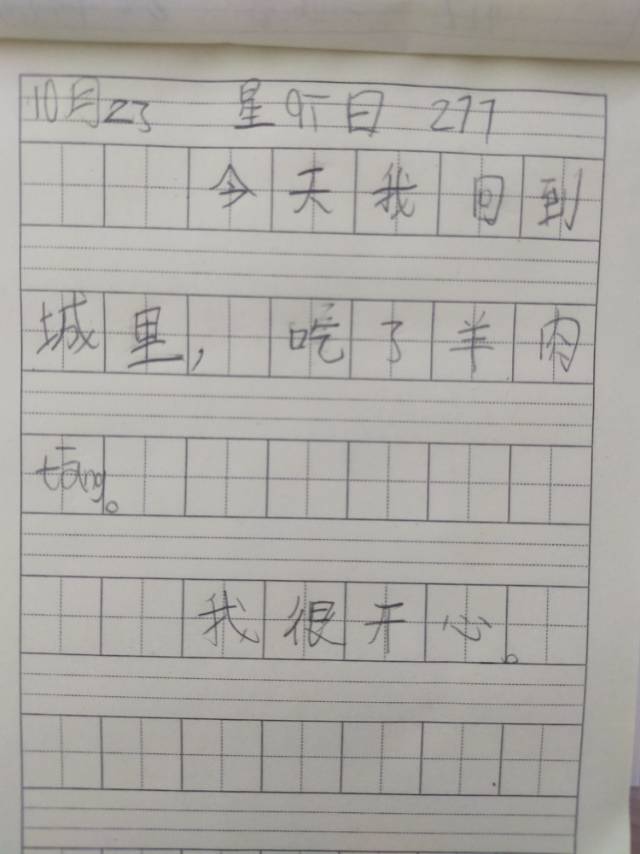 10月23 星期日 277
今天我回到
城里，吃了羊肉
tāng。
我很开心。